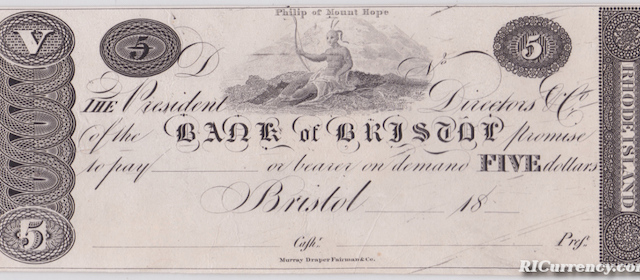 Philip of Mount Hope
V 5 D No 5
THE President Directors & Co.
of the BANK of BRISTOL promise
to pay or bearer on demand FIVE dollars
Bristol 18
5
Cashr. Prest.
Murray Draper Fairman & Co.
RHODE ISLAND
RICurrency.com